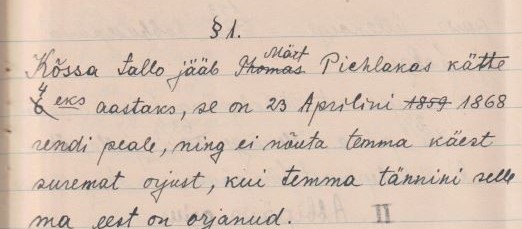 § 1.
Märt
Kõssa tallo jääb Thomas Pichlakas kätte
4
6 eks aastaks, se on 23 Aprilini 1859 1868
rendi peale, ning ei nõuta temma käest
suremat orjust, kui temma tännini selle
ma eest on orjanud.
II